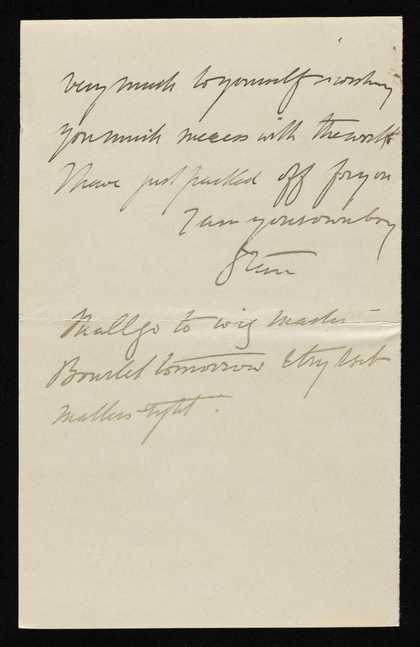 very much to yourself & wishing
you much success with the work
I have just packed off for you
I am yours own boy
Shall go to wig master
tomorrow & try & set
matters right.